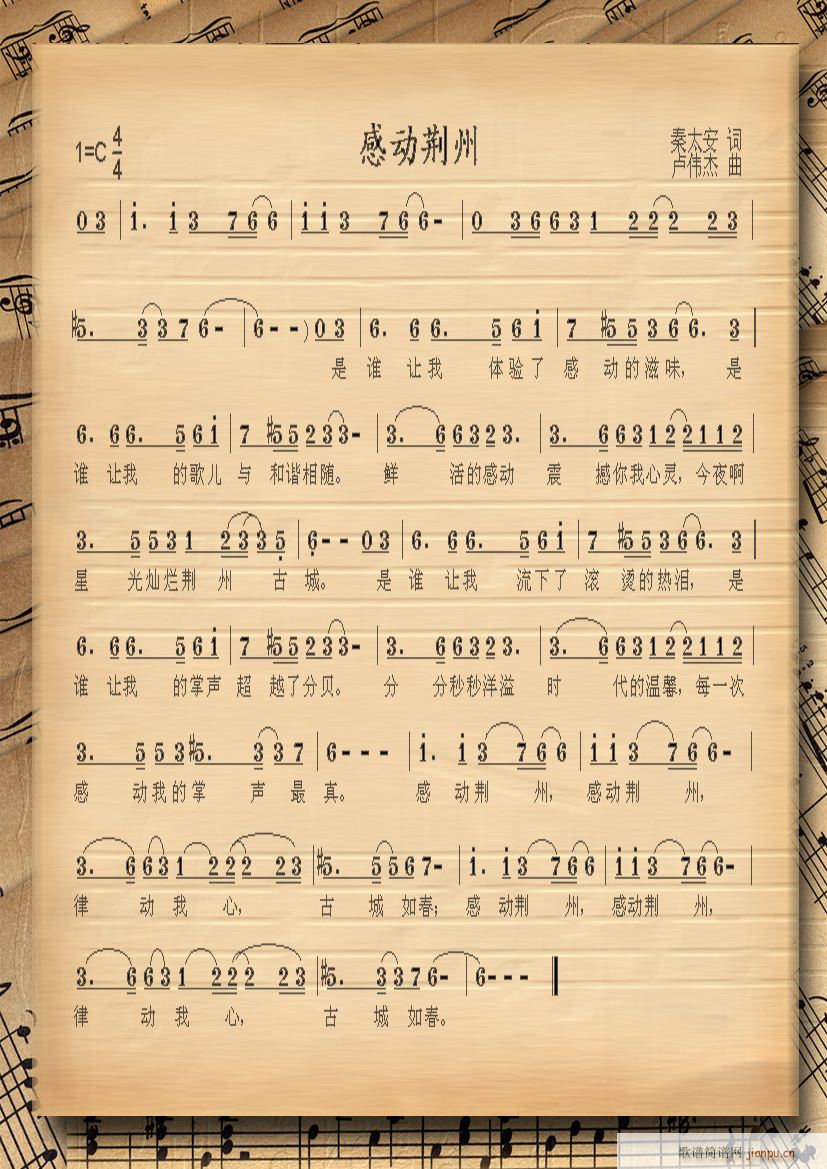 感动荆州
1=C 4/4
秦太安 词
卢伟杰 曲
0 3 | i. i 3 7 6 6 | i i 3 7 6 6 - | 0 3 6 6 3 1 2 2 2 2 3 |
#5. 3 3 7 6 - | 6 - - ) 0 3 | 6. 6 6. 5 6 i | 7 #5 5 3 6 6. 3 |
是 谁 让我 体验了 感 动的滋味, 是
6. 6 6. 5 6 i | 7 #5 5 2 3 3 - | 3. 6 6 3 2 3. | 3. 6 6 3 1 2 2 1 1 2 |
谁 让我 的歌儿 与 和谐相随。 鲜 活的感动 震 撼你我心灵, 今夜啊
3. 5 5 3 1 2 3 3 5 | 6 - - 0 3 | 6. 6 6. 5 6 i | 7 #5 5 3 6 6. 3 |
星 光灿烂荆 州 古 城。 是 谁 让我 流下了 滚 烫的热泪, 是
6. 6 6. 5 6 i | 7 #5 5 2 3 3 - | 3. 6 6 3 2 3. | 3. 6 6 3 1 2 2 1 1 2 |
谁 让我 的掌声 超 越了分贝。 分 分秒秒洋溢 时 代的温馨, 每一次
3. 5 5 3 #5. 3 3 7 | 6 - - - | i. i 3 7 6 6 | i i 3 7 6 6 - |
感 动我的掌 声 最 真。 感 动荆 州, 感动荆 州,
3. 6 6 3 1 2 2 2 2 3 | #5. 5 5 6 7 - | i. i 3 7 6 6 | i i 3 7 6 6 - |
律 动 我 心, 古 城 如春; 感 动荆 州, 感动荆 州,
3. 6 6 3 1 2 2 2 2 3 | #5. 3 3 7 6 - | 6 - - -
律 动 我 心, 古 城 如春。
歌谱简谱网 jianpu.cn